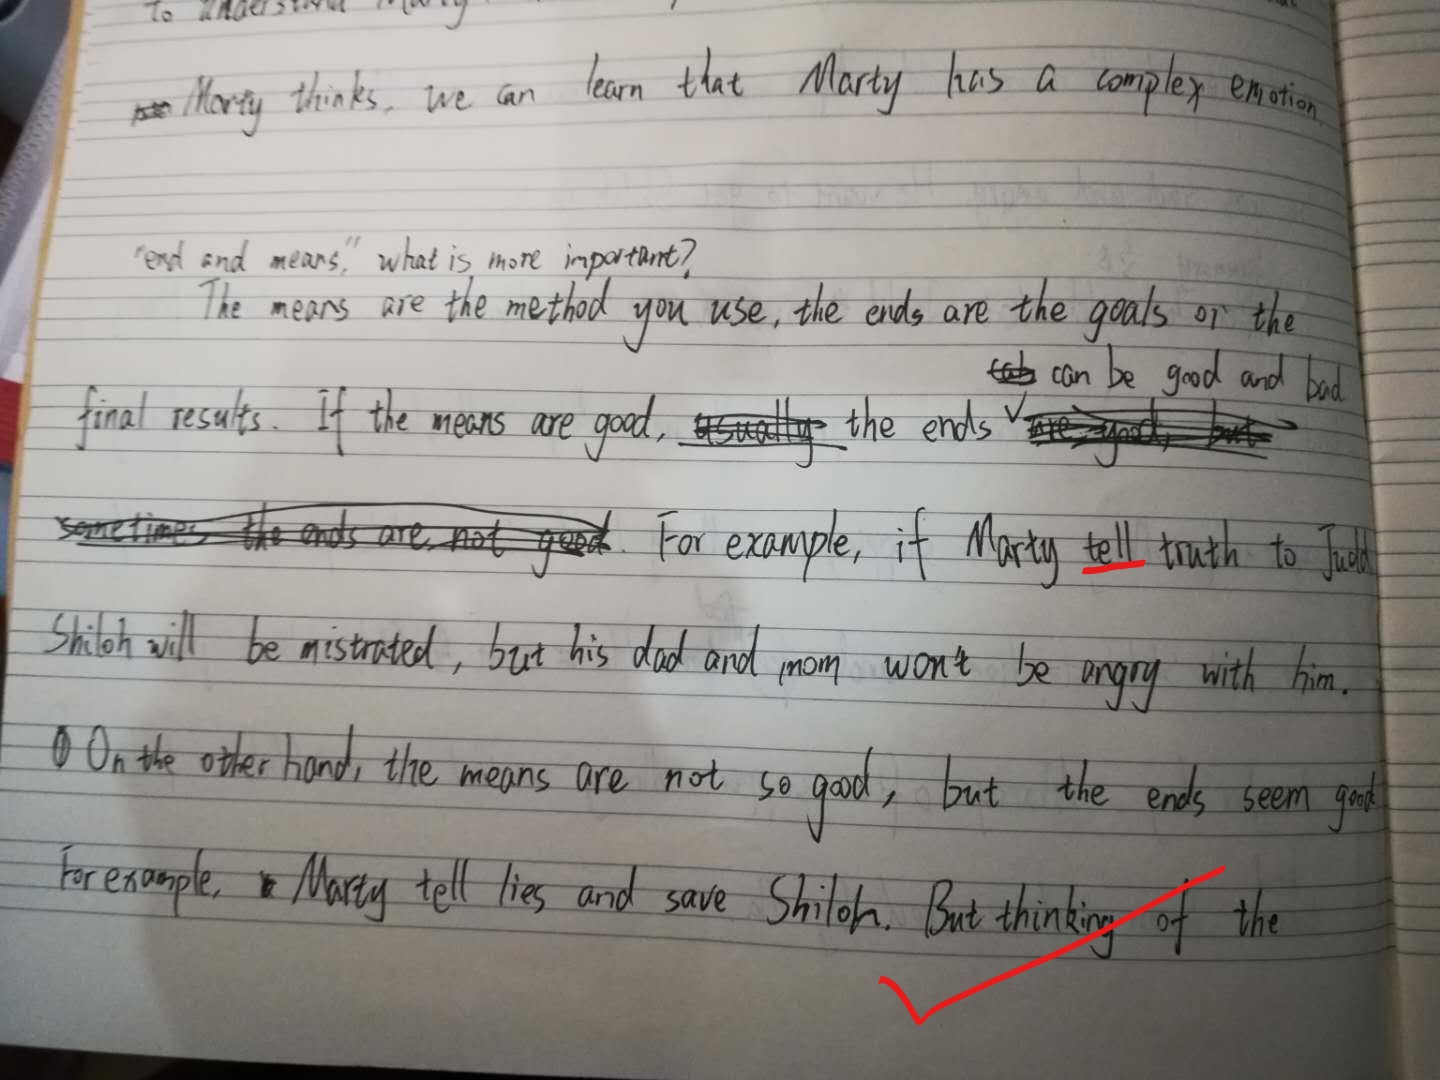 To understand Marty
Marty thinks, we can learn that Marty has a complex emotion.
"end and means," what is more important?
The means are the method you use, the ends are the goals or the
can be good and bad
final results. If the means are good, usually the ends are good, but
sometimes the ends are not good. For example, if Marty tell truth to Judd
Shiloh will be mistrated, but his dad and mom won't be angry with him.
On the other hand, the means are not so good, but the ends seem good
For example, Marty tell lies and save Shiloh. But thinking of the